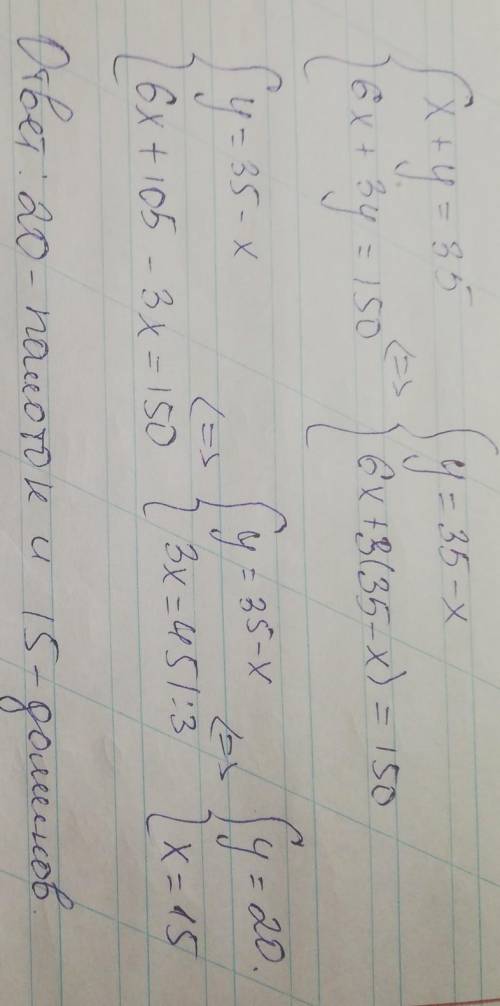 { x + y = 35
{ 6x + 3y = 150 <=> { y = 35 - x
{ 6x + 3(35 - x) = 150
{ y = 35 - x
{ 6x + 105 - 3x = 150 <=> { y = 35 - x
{ 3x = 45 |:3 <=> { y = 20.
{ x = 15
Ответ: 20 - палоток и 15 - домиков.